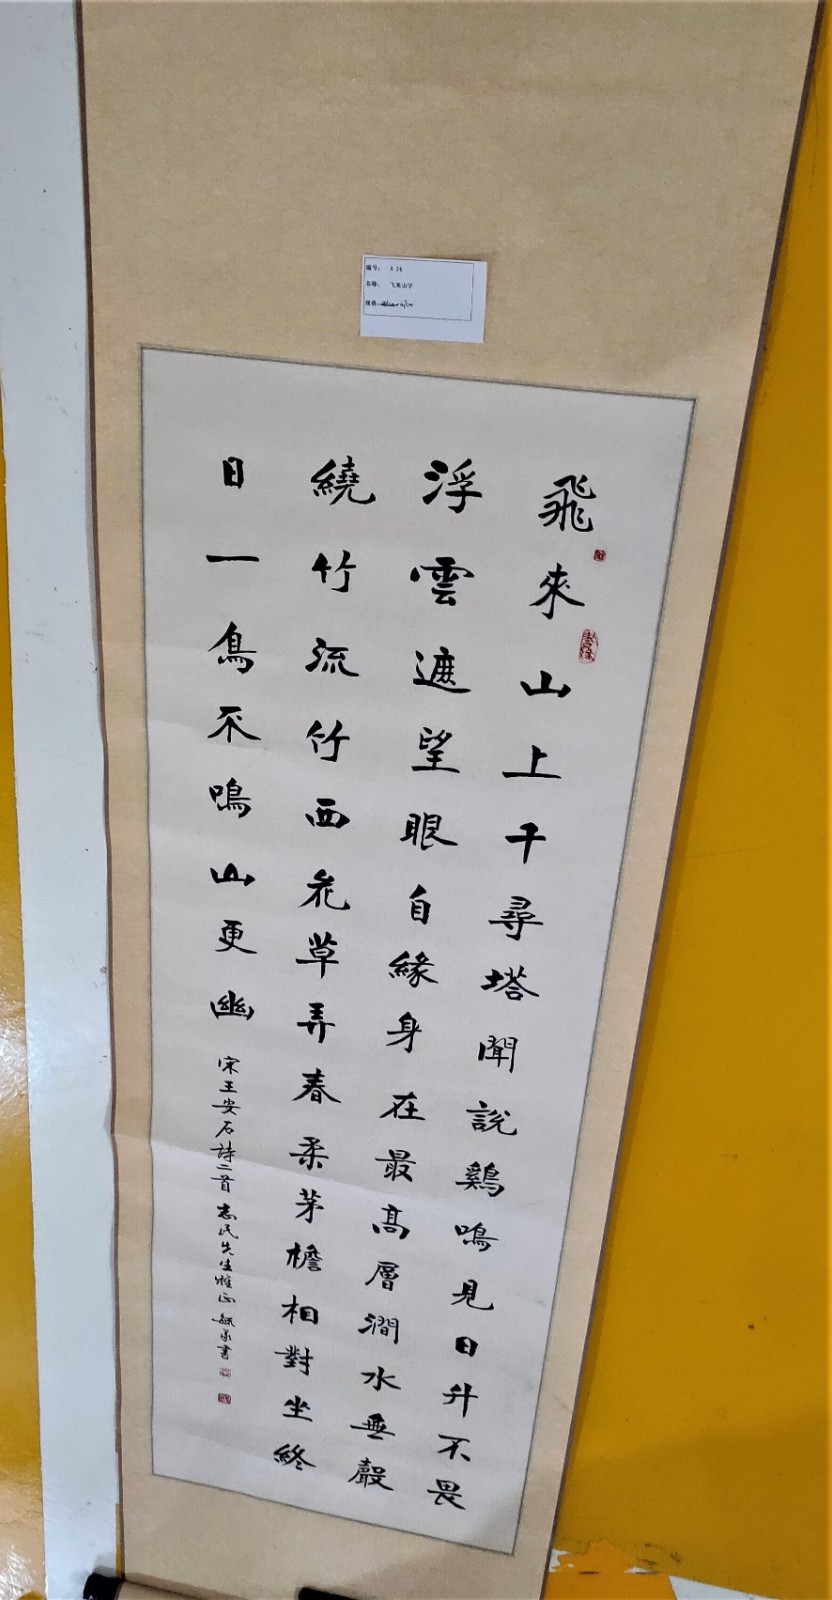 编号： A 24
名称： 飞来山字
规格
飛來山上千尋塔聞說鷄鳴見日升不畏
浮雲遮望眼自緣身在最高層澗水無聲
繞竹流竹西花草弄春柔茅檐相對坐終
日一鳥不鳴山更幽
宋王安石詩二首 志民先生雅正 書